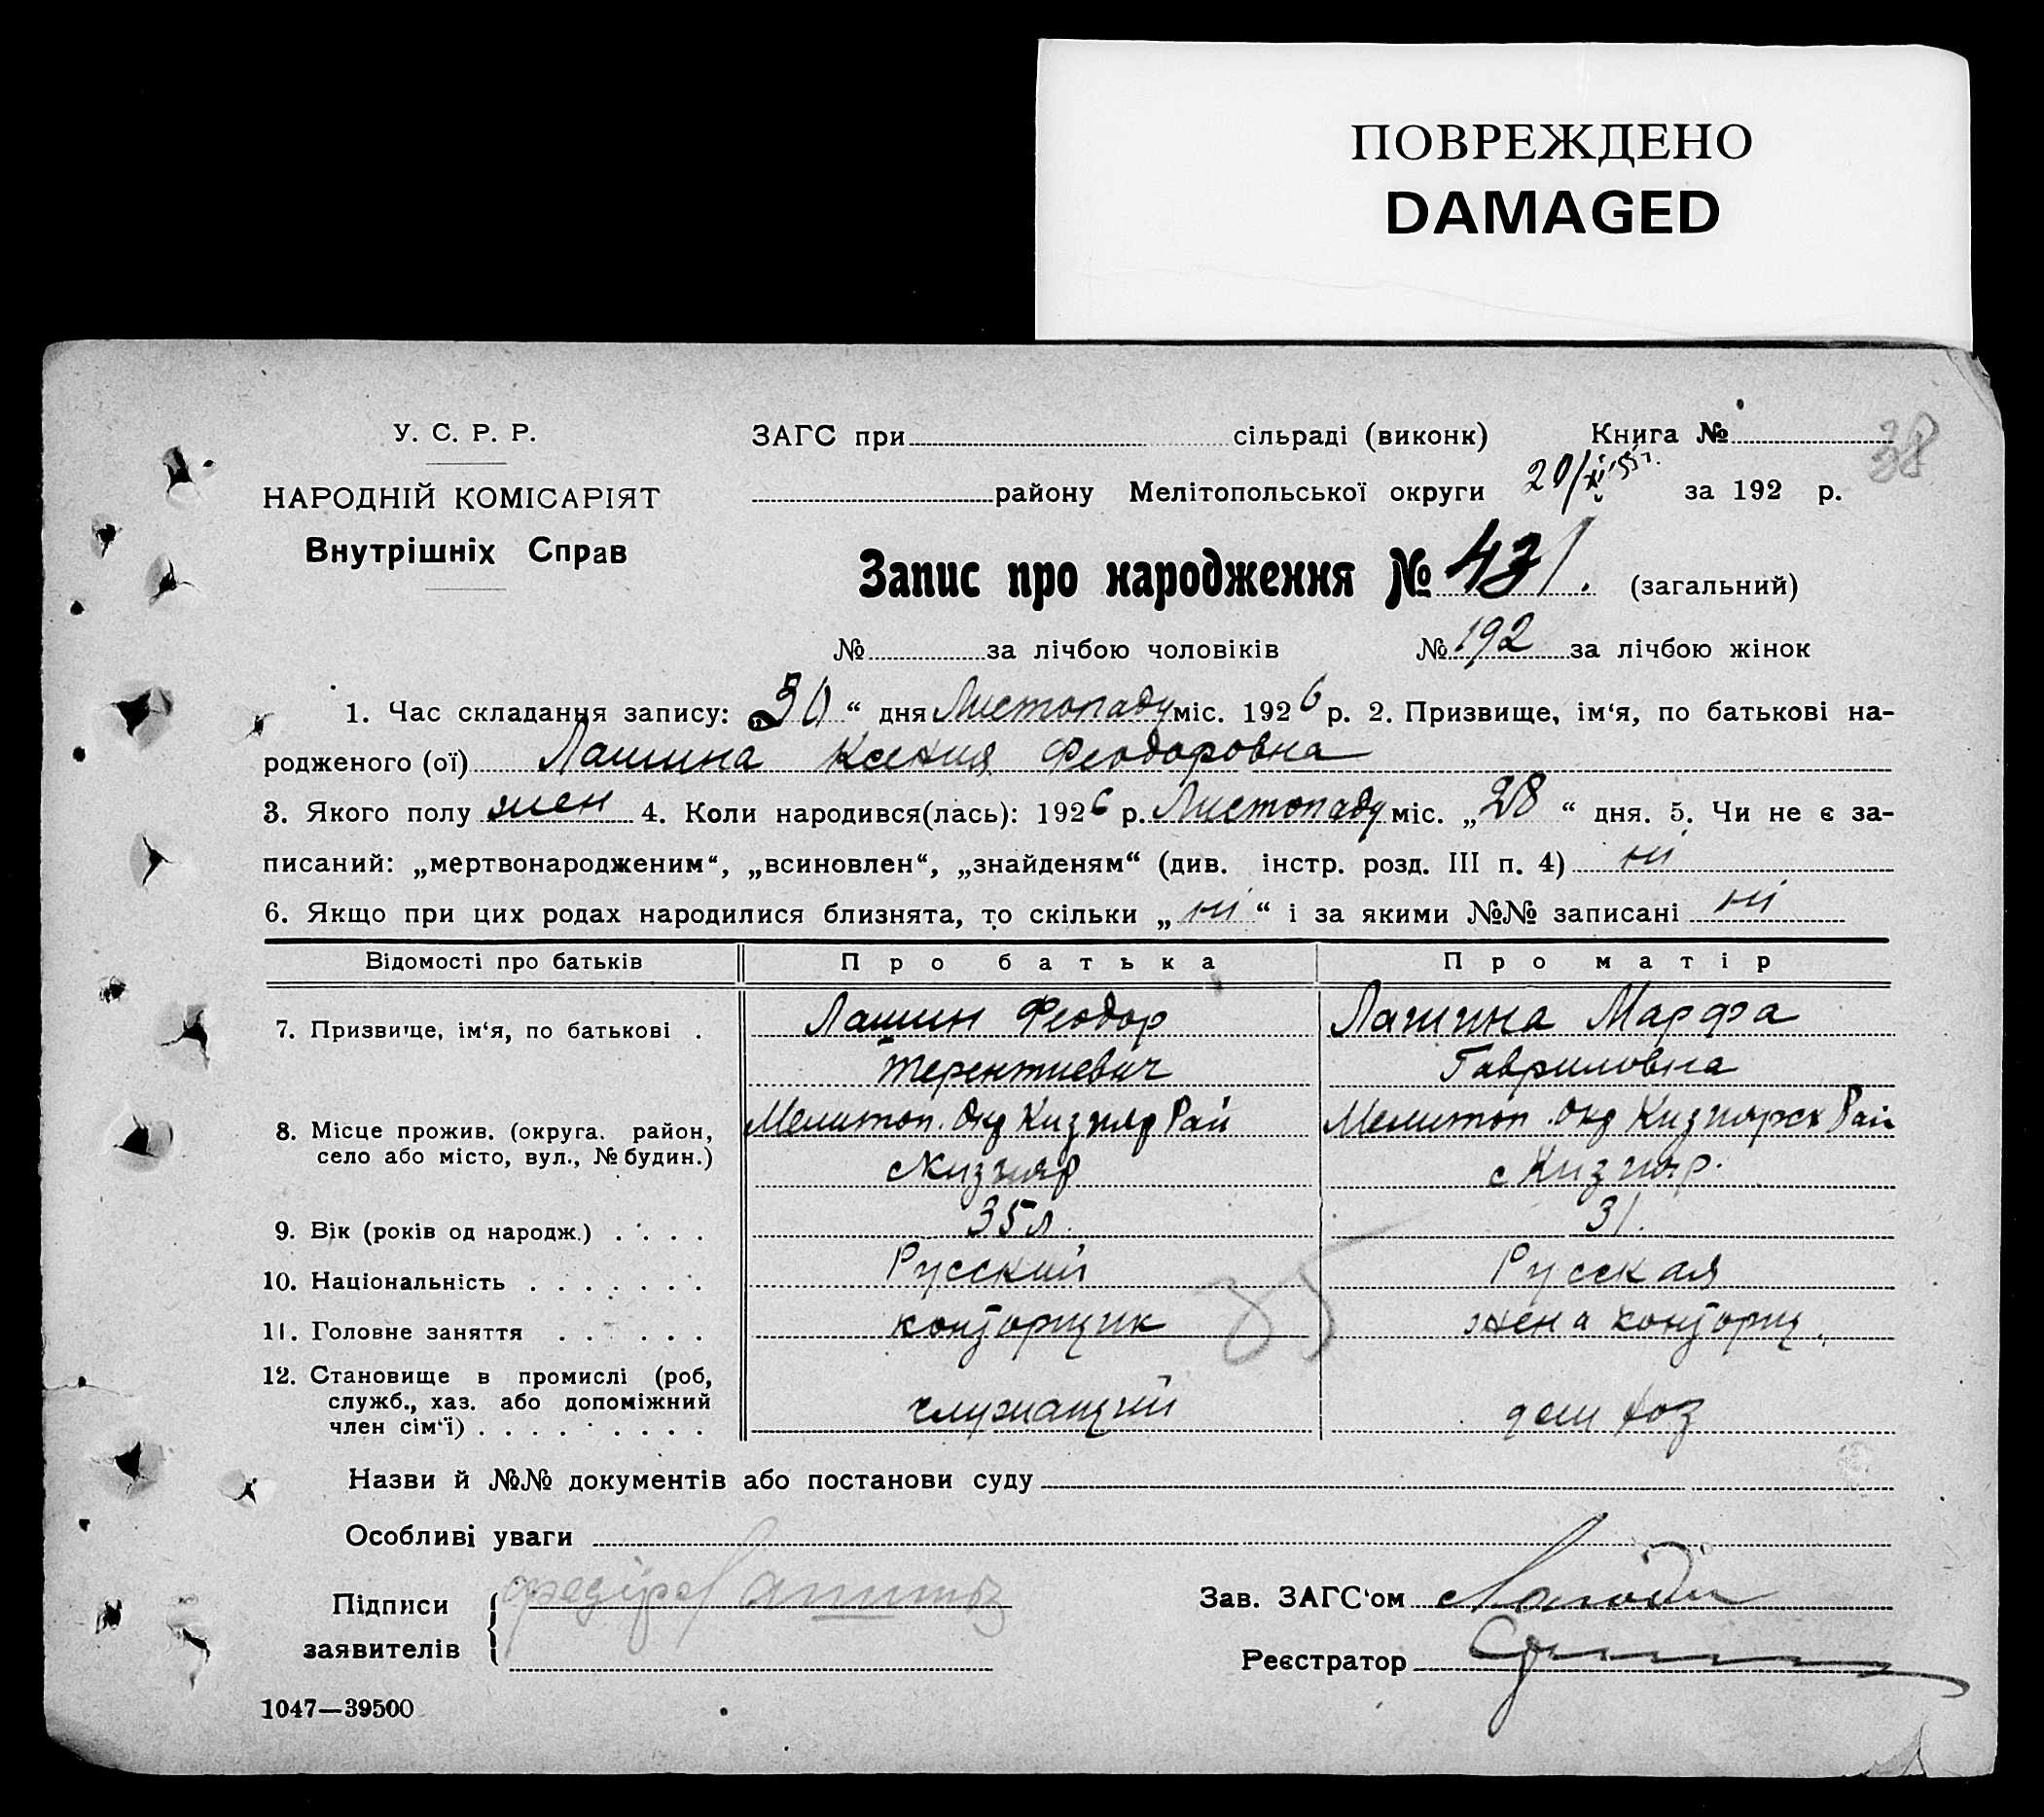 ПОВРЕЖДЕНО
DAMAGED
У. С. Р. Р.
НАРОДНІЙ КОМІСАРІЯТ
Внутрішніх Справ
ЗАГС при сільраді (виконк) Книга № 38
району Мелітопольської округи 20/XI за 192 р.
Запис про народження № 431. (загальний)
№ за лічбою чоловіків № 192 за лічбою жінок
1. Час складання запису: „30“ дня Листопаду міс. 1926 р. 2. Призвище, ім‘я, по батькові на-
родженого (ої) Лашина Ксения Феодоровна
3. Якого полу жен 4. Коли народився(лась): 1926 р. Листопаду міс. „28“ дня. 5. Чи не є за-
писаний: „мертвонародженим“, „всиновлен“, „знайденям“ (див. інстр. розд. III п. 4) ні
6. Якщо при цих родах народилися близнята, то скільки „ні“ і за якими №№ записані ні
Відомості про батьків Про батька Про матір
7. Призвище, ім‘я, по батькові . Лашин Феодор Лашина Марфа
Терентиевич Гавриловна
8. Місце прожив. (округа. район, Мелитоп. Окр Кизияр Рай Мелитоп. Окр Кизиярск Рай
село або місто, вул., № будин.) с Кизияр с Кизияр.
9. Вік (років од народж.) . . . . 35 л. 31.
10. Національність . . . . . . . Русский Русская
11. Головне заняття . . . . . . конторщик 35 жена конторщ.
12. Становище в промислі (роб,
служб., хаз. або допоміжний служащий дом хоз
член сім‘ї) . . . . . . . . .
Назви й №№ документів або постанови суду
Особливі уваги
Підписи Зав. ЗАГС‘ом
заявителів Реєстратор
1047—39500